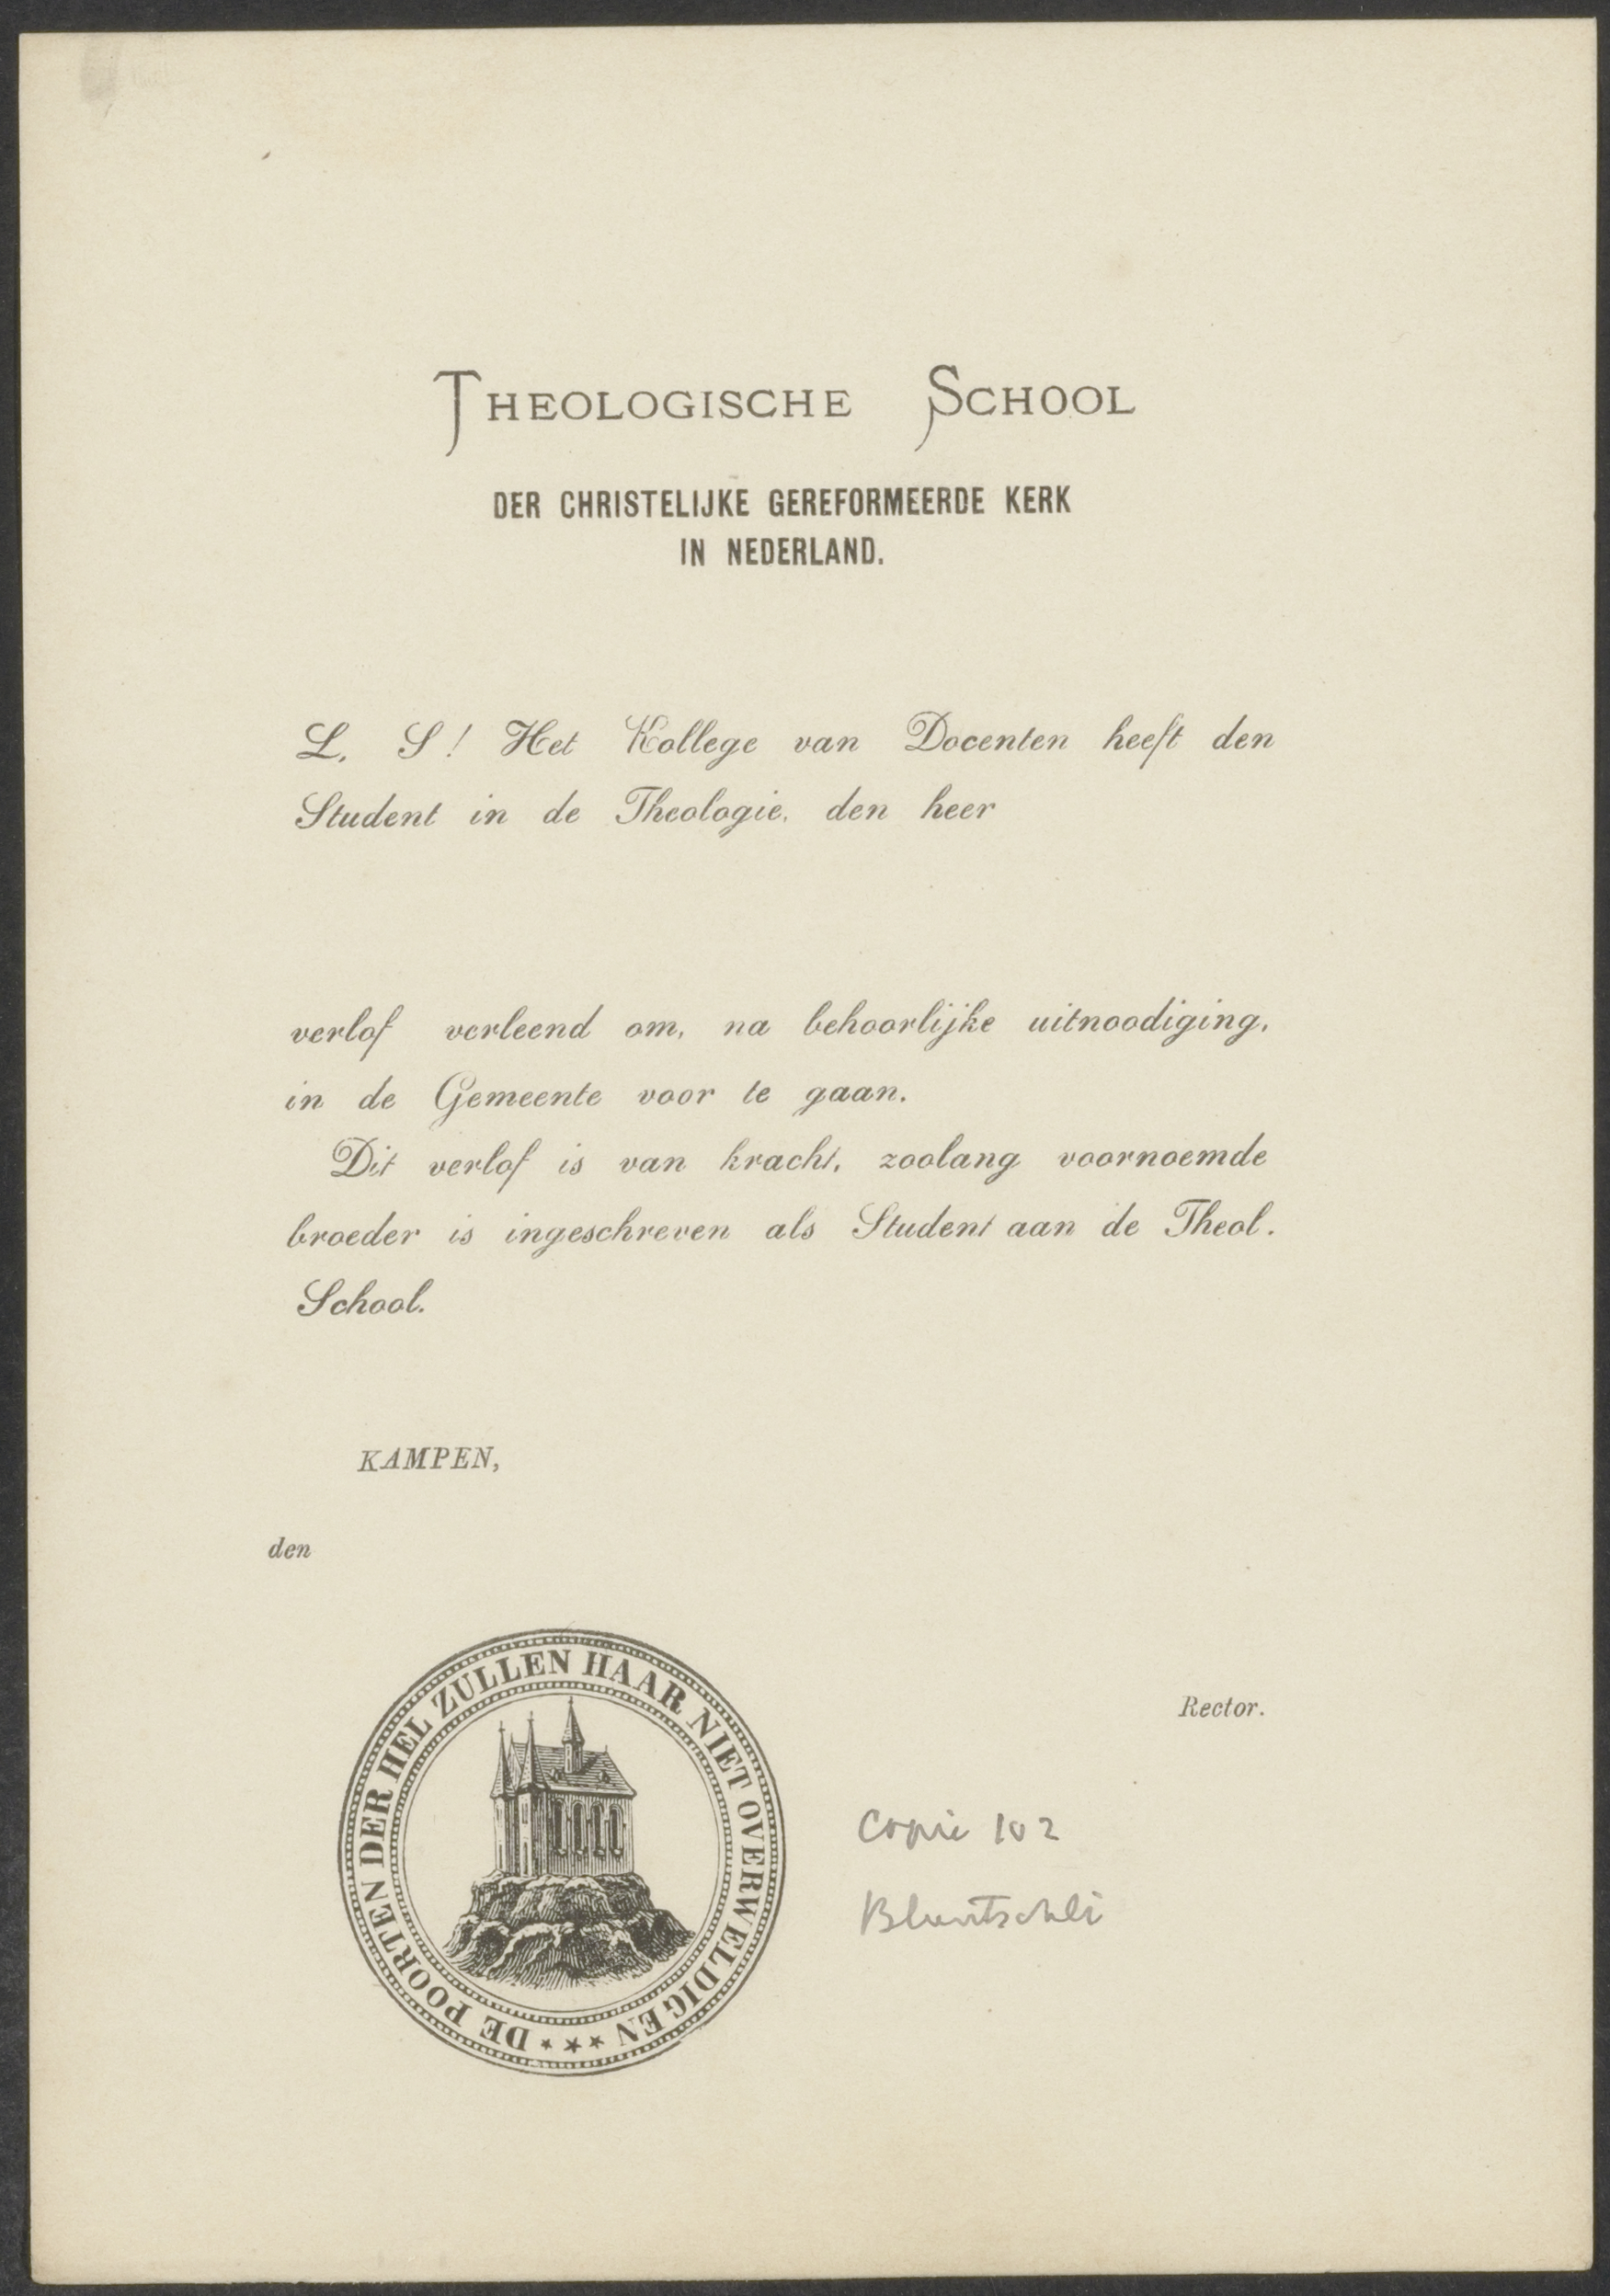 THEOLOGISCHE SCHOOL
DER CHRISTELIJKE GEREFORMEERDE KERK
IN NEDERLAND.
L. S! Het Kollege van Docenten heeft den
Student in de Theologie, den heer
verlof verleend om, na behoorlijke uitnoodiging,
in de Gemeente voor te gaan.
Dit verlof is van kracht, zoolang voornoemde
broeder is ingeschreven als Student aan de Theol.
School.
KAMPEN,
den
Rector.
DE POORTEN DER HEL ZULLEN HAAR NIET OVERWELDIGEN ***
Copie 102
Bluntschli